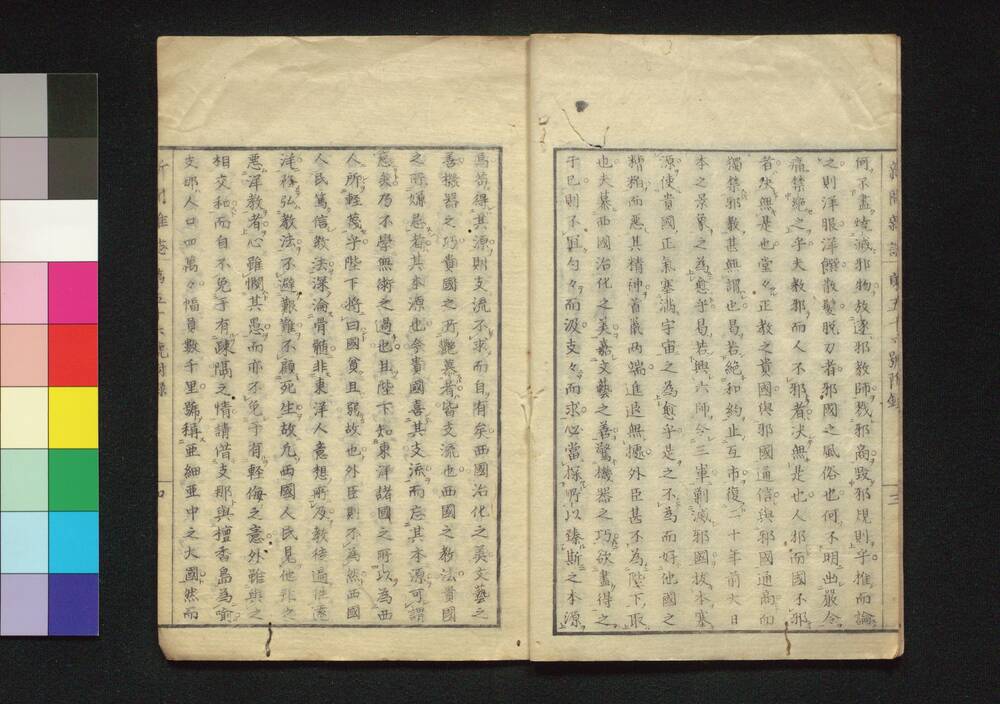 何不盡燒滅邪物放逐邪教師戮邪商毀邪規則乎推而論
之則洋服洋髷散髮脫刀者邪國之風俗也何不明出嚴令
痛禁絶之乎夫教邪而人不邪者决無是也人邪而國不邪
者决無是也堂々正教之貴國與邪國通信與邪國通商而
獨禁邪教甚無謂也曷若絶和約止互市復二十年前大日
本之景象之為愈乎曷若興六師令三軍剿滅邪國拔本塞
源使貴國正氣塞滿宇宙之為愈乎是之不為而好他國之
糟粕而惡其精神首鼠兩端進退無據外臣甚不為陛下取
也夫慕西國治化之美嘉文藝之善驚機器之巧欲盡得之
于已則不宜勾々而汲支々而求必當探所以臻斯之本源
焉苟得其源則支流不求而自有矣西國治化之美文藝之
善機器之巧貴國之所艷慕者皆支流也西國之教法貴國
之所嫌忌者其本源也今貴國喜其支流而忘其本源可謂
惑矣乃不學無術之過也且陛下知東洋諸國之所以為西
人所輕蔑乎陛下將曰國貧且弱故也外臣則不為然西國
人民篤信教法深淪骨髓非東洋人意想所及教徒過件遠
洋務弘教法不避艱難不顧死生故凡西國人民見他邦之
惡洋教者心雖憫其愚而亦不免于有輕侮之意外雖與之
相交和而自不免于有疎隔之情請借支那與檀香島為喻
支那人口四萬々幅員數千里號稱亞細亞中之大國然而